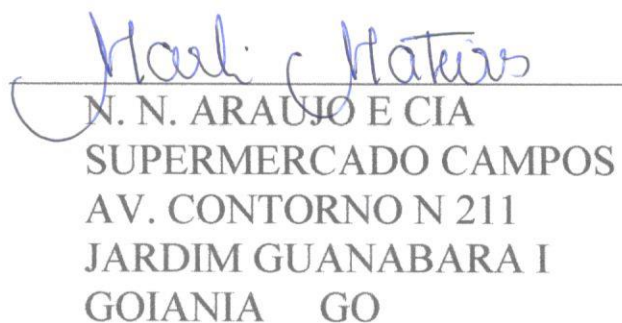 Marli Mateus
N. N. ARAUJO E CIA
SUPERMERCADO CAMPOS
AV. CONTORNO N 211
JARDIM GUANABARA I
GOIANIA GO